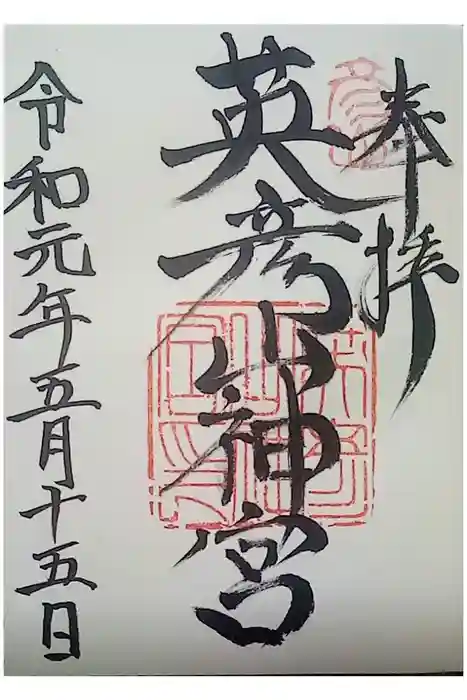 奉拝
英彦山神宮
令和元年五月十五日